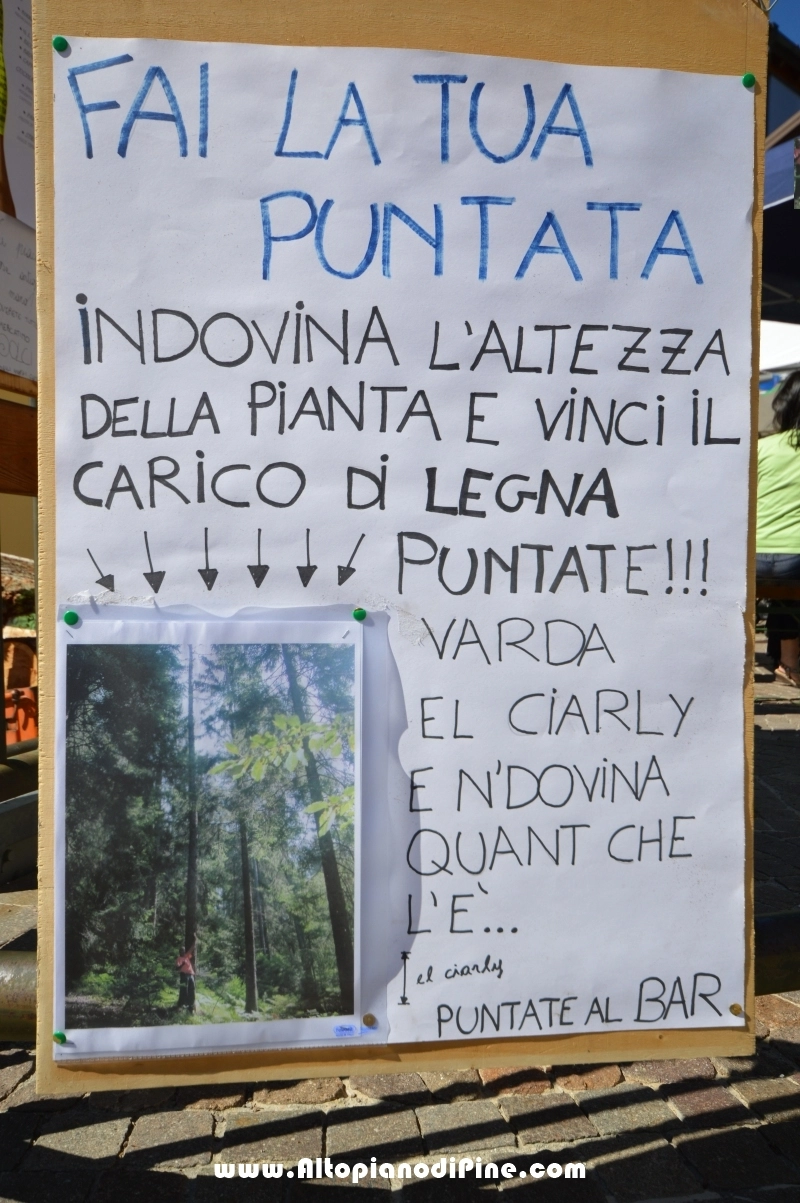 FAI LA TUA
PUNTATA
iNDOViNA L'ALTEZZA
DELLA PiANTA E ViNCi iL
CARiCO Di LEGNA
PUNTATE!!!
VARDA
EL CiARLY
E N'DOViNA
QUANT CHE
L'E`...
el ciarly
PUNTATE AL BAR
www.AltopianodiPine.com